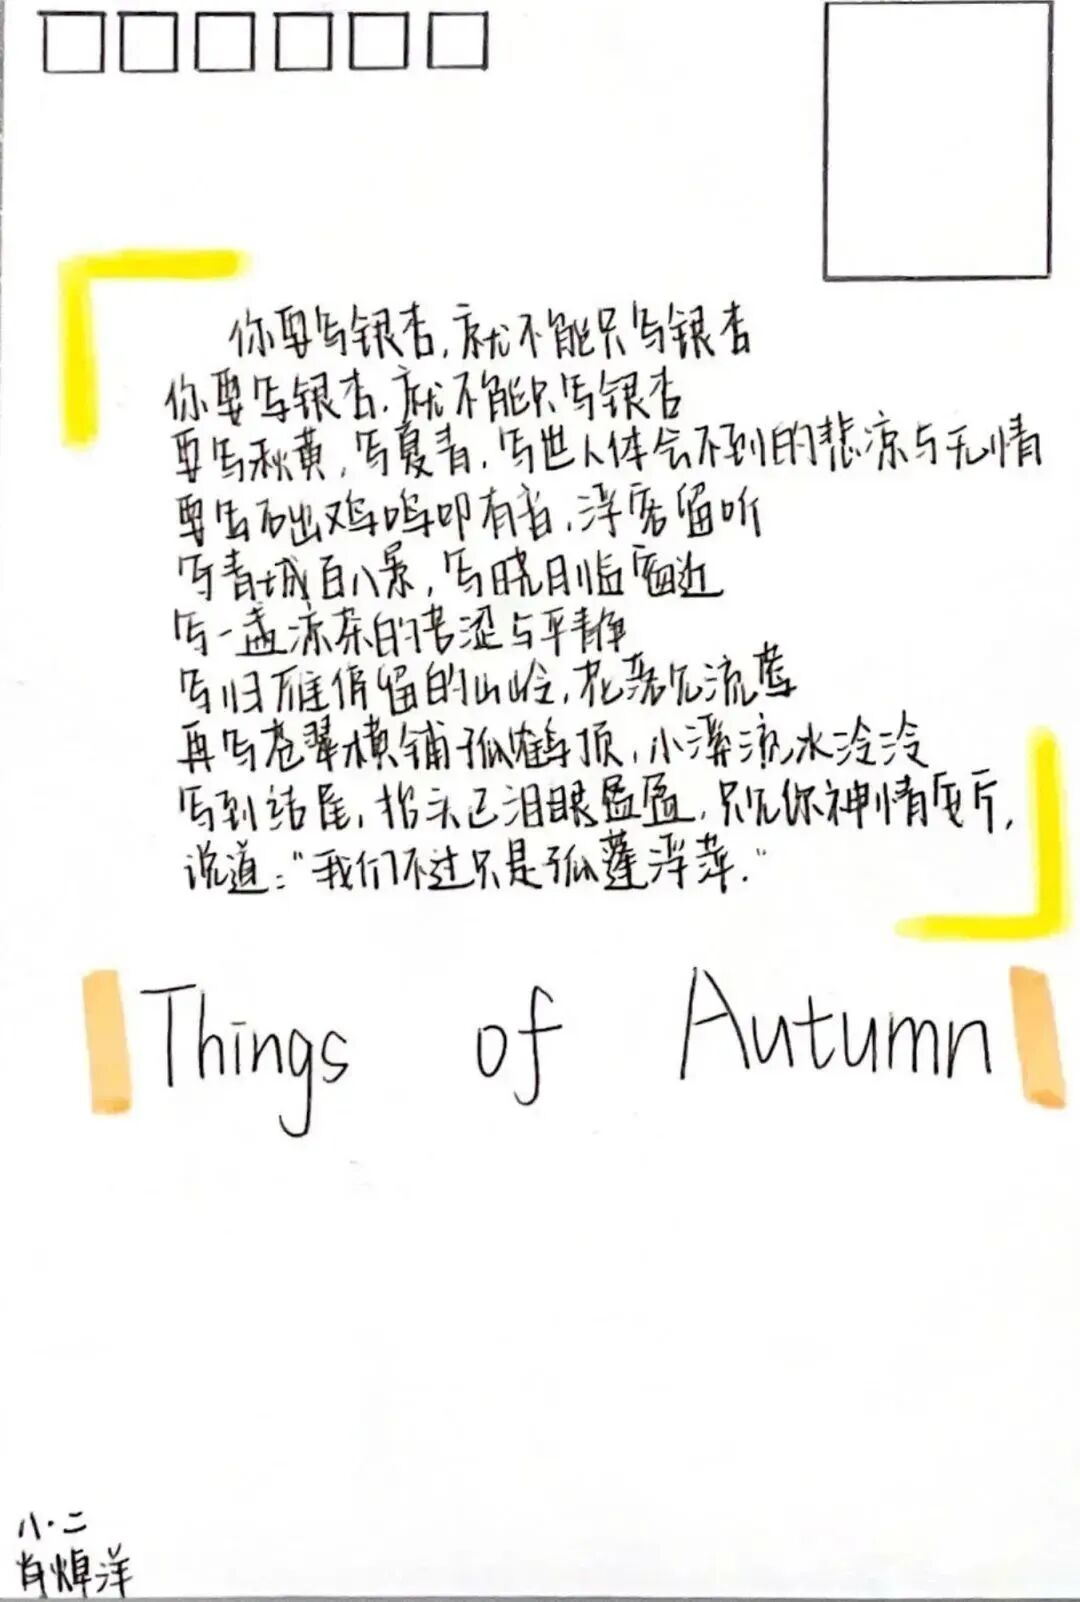 你要写银杏,就不能只写银杏
你要写银杏,就不能只写银杏
要写秋黄,写夏青,写世人体会不到的悲凉与无情
要写石出鸡鸣叩有音,浮客留听
写青城百八景,写晓日临窗近
写一盏凉茶的苦涩与平静
写归雁俏留的山岭,花落见流莺
再写苍翠横铺孤鹤顶,小溪流水泠泠
写到结尾,抬头已泪眼盈盈,只见你神情安宁,
说道:“我们不过只是孤蓬浮萍.”
Things of Autumn
八·二
肖焯洋